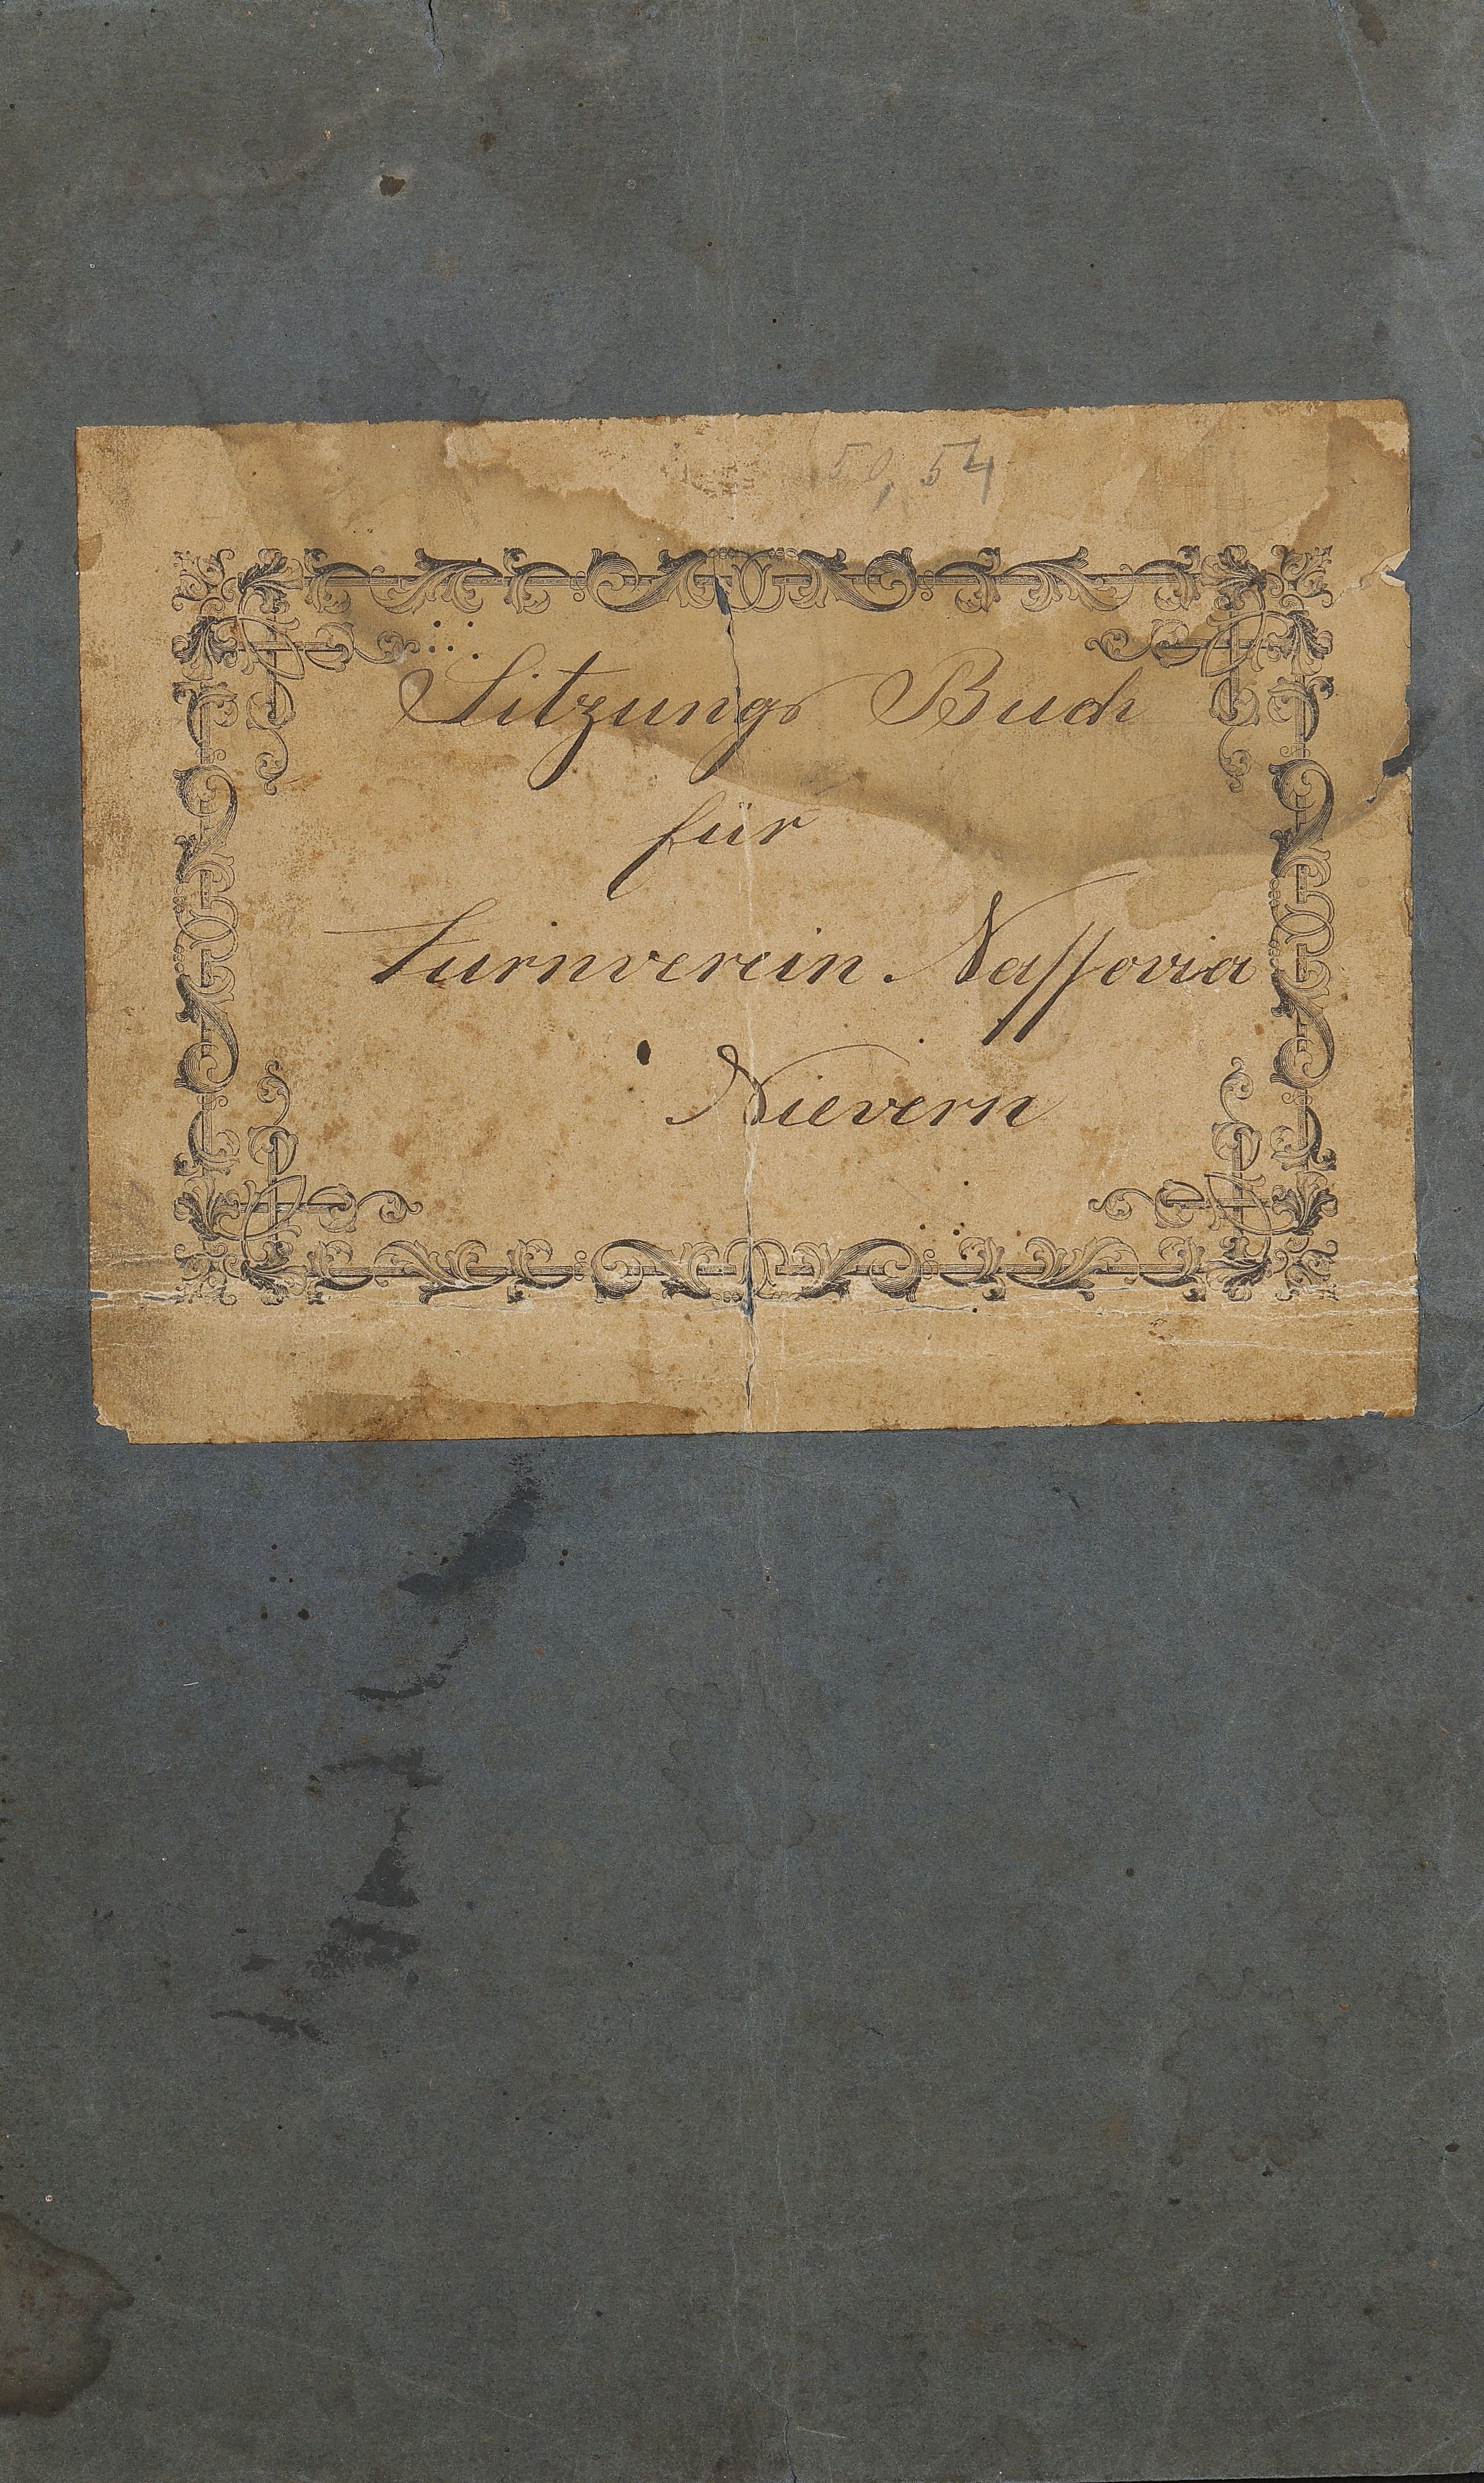 50, 54
Sitzungs Buch
für
Turnverein. Nassovia
Nievern